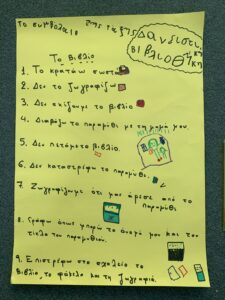 Το συμβόλαιο της τάξης
Δανειστι.
βιβλιοθήκη
Το βιβλίο
1. Το κρατάω σωστά
2. Δεν το ζωγραφίζω
3. Δεν σκίζουμε το βιβλίο
4. Διαβάζω το παραμύθι με τη μαμά μου.
5. Δεν πετάμετο βιβλίο.
6. Δεν καταστρέφω το παραμύθι.
7. Ζωγραφίζουμε ότι μας άρεσε από το
παραμύθι
8. Γράφω όπως μπορώ το όνομά μου και τον
τίτλο του παραμυθιού.
9. Επιστρέφω στο σχολείο το
βιβλίο, το φάκελο και τη ζωγραφιά.